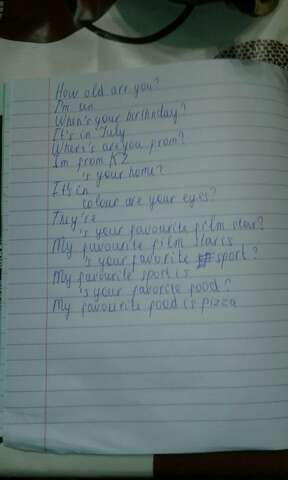 How old are you?
I'm ten
When's your birthday?
It's in July
Where's are you from?
I'm from KZ
's your home?
It's in
colour are your eyes?
They're
's your favourite film star?
My favourite film star is
's your favorite sport?
My favourite sport is
's your favorite food?
My favourite food is pizza